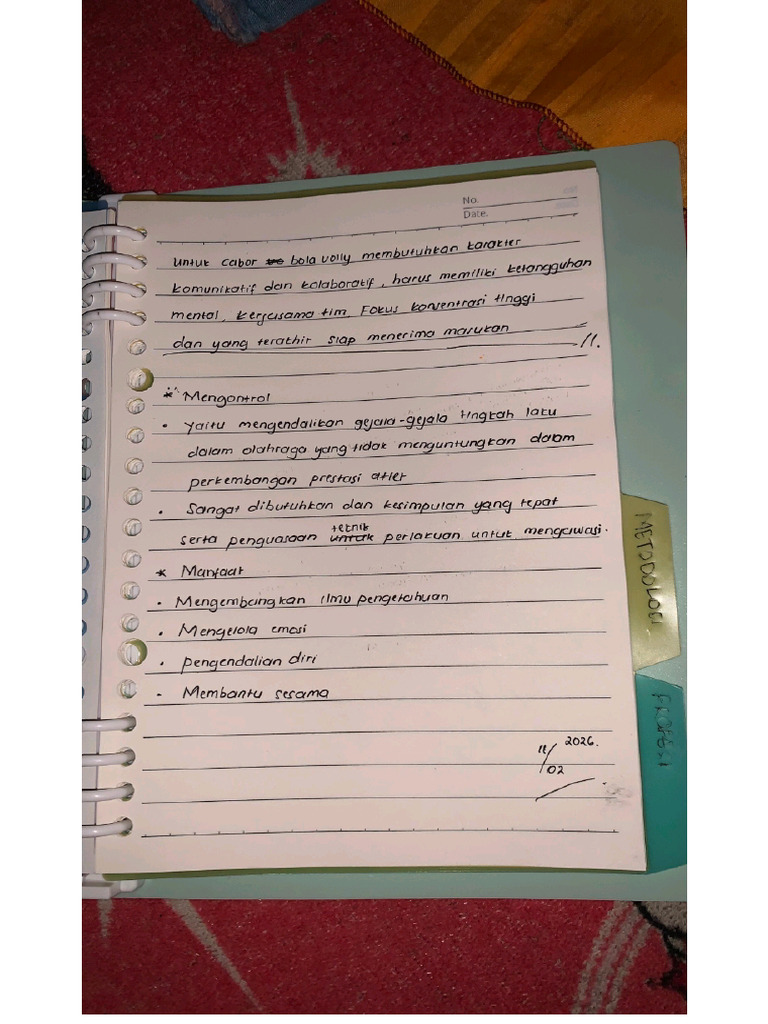 No.
Date.
untuk cabor bola volly membutuhkan karakter
komunikatif dan kolaboratif, harus memiliki ketangguhan
mental, kerjasama tim. Fokus konsentrasi tinggi
dan yang terakhir siap menerima masukan //.
* Mengontrol
• Yaitu mengendalikan gejala-gejala tingkah laku
dalam olahraga yang tidak menguntungkan dalam
perkembangan prestasi atlet
• Sangat dibutuhkan dan kesimpulan yang tepat
serta penguasaan teknik perlakuan untuk mengawasi.
* Manfaat
• Mengembangkan ilmu pengetahuan
• Mengelola emosi
• pengendalian diri
- Membantu sesama
2026.
/02
METODOLOGI